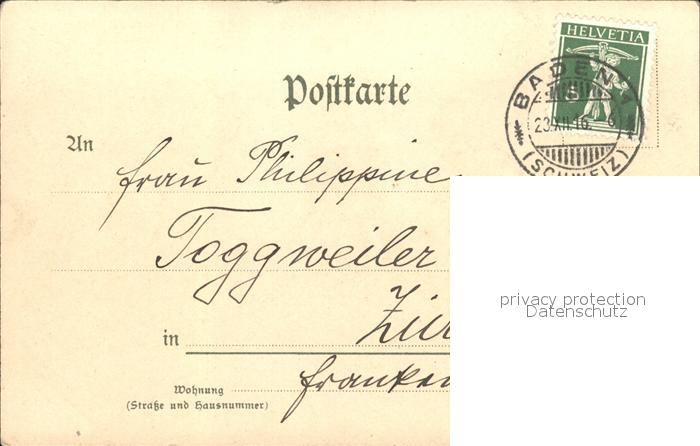 HELVETIA
BADEN 1
23.XII.16.
(SCHWEIZ)
Postkarte
An
Frau Philippine
Toggweiler
in Zür
Wohnung Franken
(Straße und Hausnummer)
privacy protection
Datenschutz